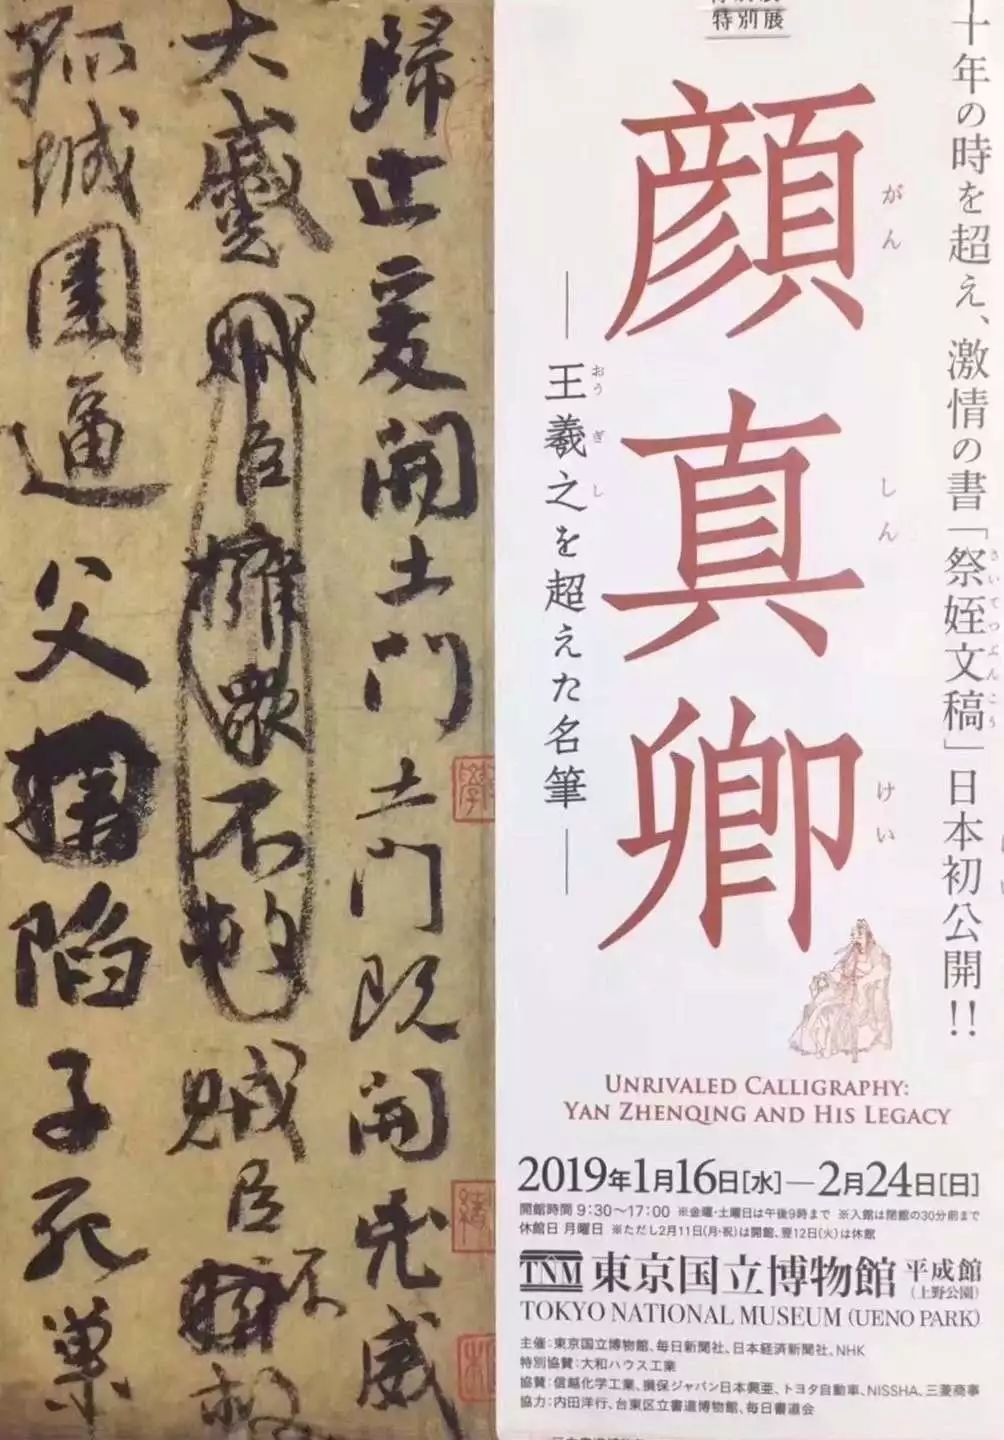 特別展
十年の時を超え、激情の書「祭姪文稿」日本初公開!!
さいてつぶんこう
顔真卿
がんしんけい
王羲之を超えた名筆
おうぎし
歸止爰開土門土門既開凶威
大蹙賊臣擁衆不救賊臣不救
孤城圍逼父陷子死巢
UNRIVALED CALLIGRAPHY:
YAN ZHENQING AND HIS LEGACY
2019年1月16日[水]—2月24日[日]
開館時間 9:30〜17:00 ※金曜・土曜日は午後9時まで ※入館は閉館の30分前まで
休館日 月曜日 ※ただし2月11日(月・祝)は開館、翌12日(火)は休館
TNM 東京国立博物館 平成館
(上野公園)
TOKYO NATIONAL MUSEUM (UENO PARK)
主催:東京国立博物館、毎日新聞社、日本経済新聞社、NHK
特別協賛:大和ハウス工業
協賛:信越化学工業、損保ジャパン日本興亜、トヨタ自動車、NISSHA、三菱商事
協力:内田洋行、台東区立書道博物館、毎日書道会